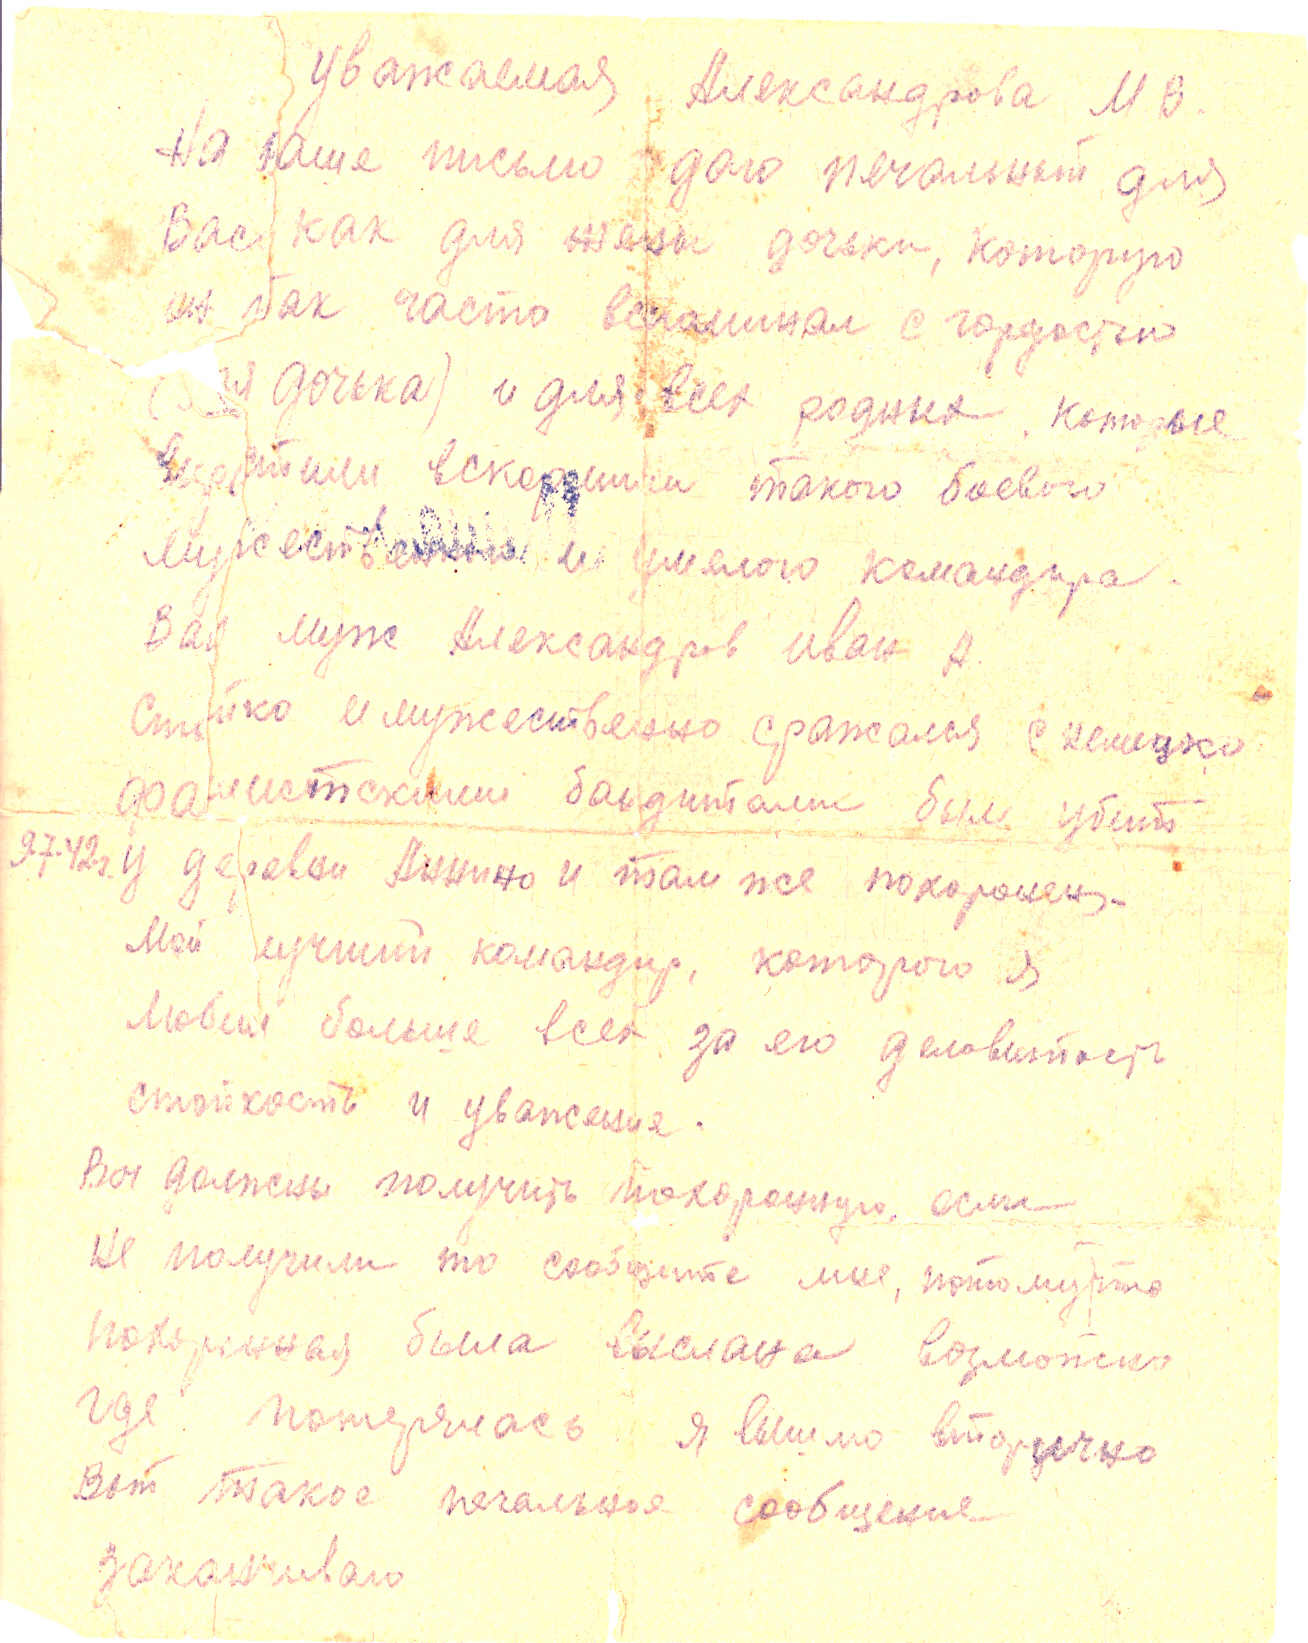 Уважаемая Александрова М В.
На ваше письмо даю печальный для
Вас как для жены дочьки, которую
он так часто вспоминал с гордостью
дочька) и для всех родных, которые
такого боевого
мужественного и умелого командира.
Ваш муж Александров Иван А.
Стойко и мужественно сражался с немецко
фашистскими бандитами был убит
9.7.42г. у деревни Аннино и там же похоронен.
Мой лучший командир, которого я
Любил больше всех за его деловитость
стойкость и уважение.
Вы должны получить похоронную, если
не получили то сообщите мне, потомучто
похоронная была выслана возможно
где потерялась я вышлю вторично
Вот такое печальное сообщение
заканчиваю